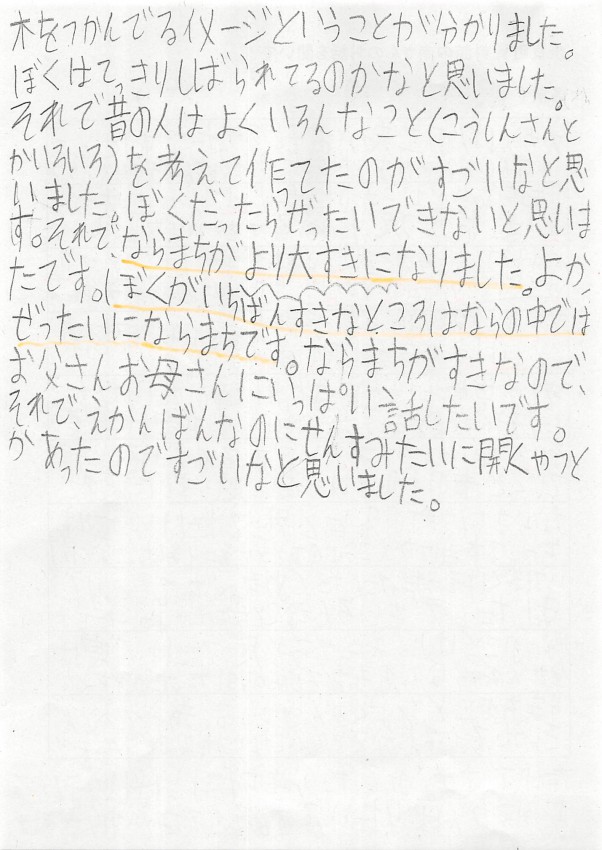 木をつかんでるイメージということが分かりました。
ぼくはてっきりしばられてるのかなと思いました。
それで昔の人はよくいろんなこと(こうしんさんと
かいろいろ)を考えて作ってたのがすごいなと思
いました。ぼくだったらぜったいできないと思いま
す。それで、ならまちがより大すきになりました。よか
たです。(ぼくがいちばんすきなところはならの中では
ぜったいにならまちです。ならまちがすきなので、
お父さんお母さんにいっぱい話したいです。
それで、えかんばんなのにせんすみたいに開くやつと
かあったのですごいなと思いました。